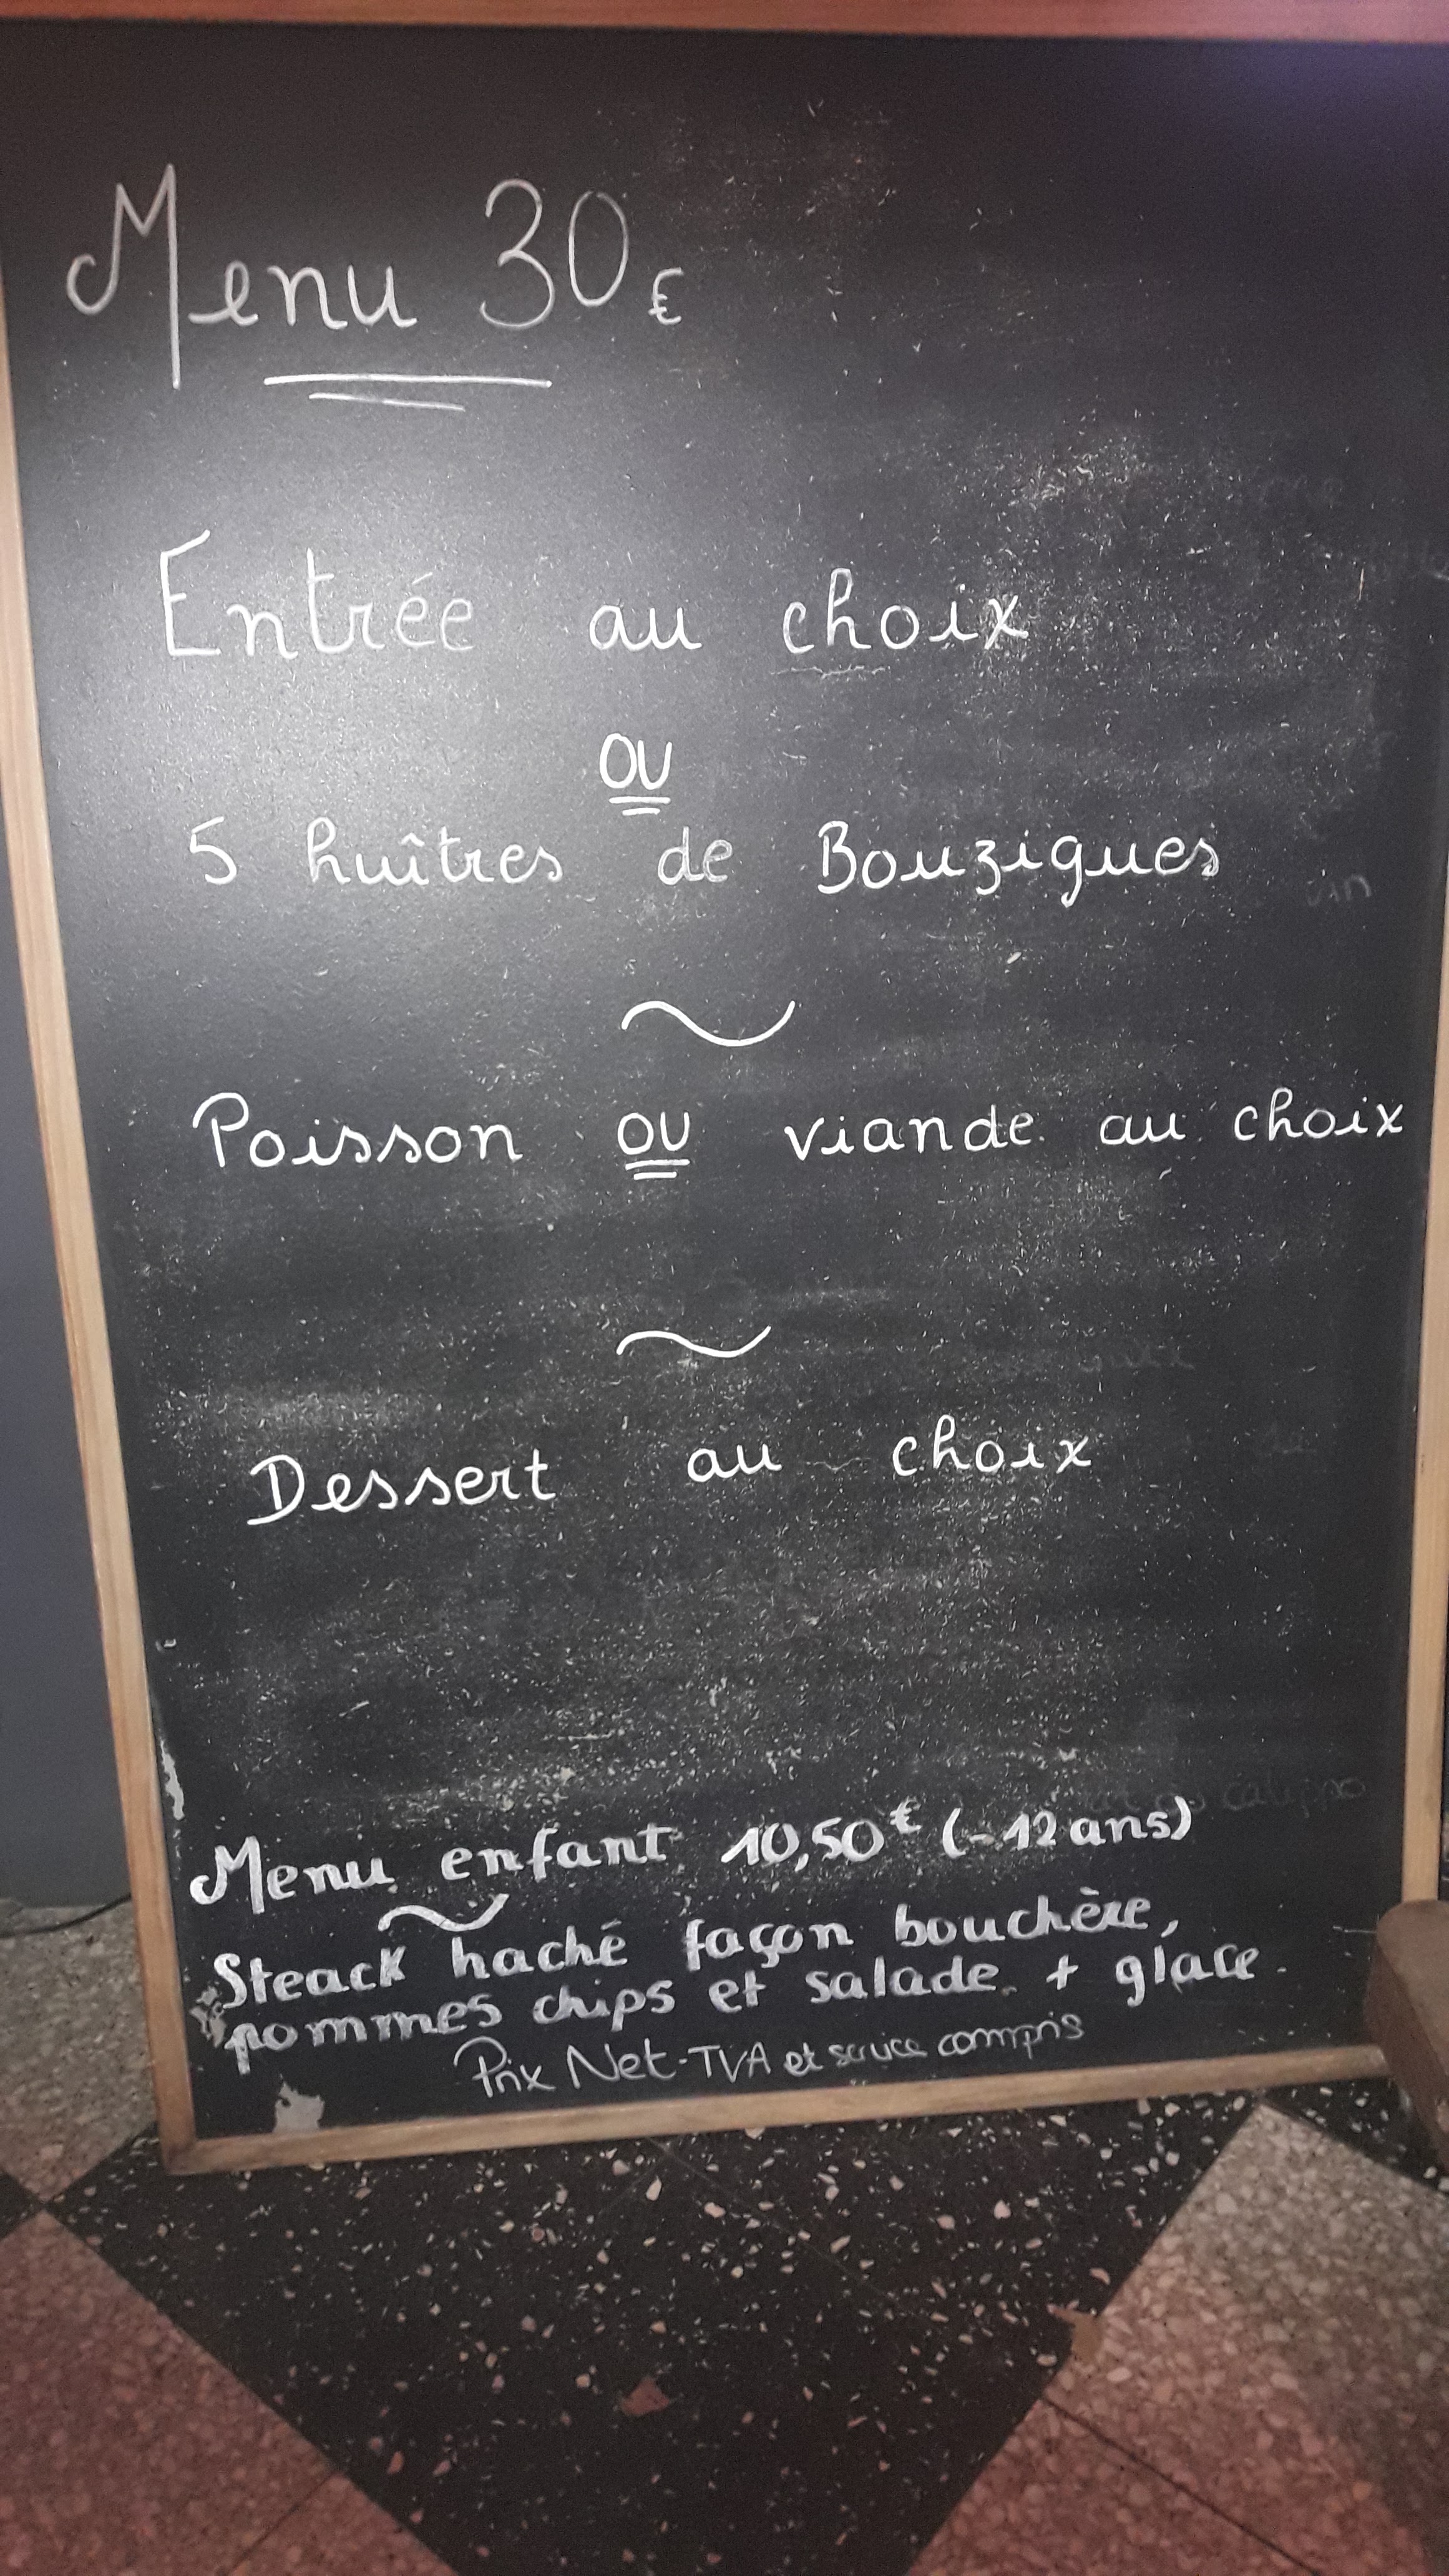 Menu 30€
Entrée au choix
ou
5 huîtres de Bouzigues
~
Poisson ou viande au choix
~
Dessert au choix
Menu enfant 10,50€ (-12ans)
~
Steack haché façon bouchère,
pommes chips et salade. + glace.
Prix Net-TVA et service compris